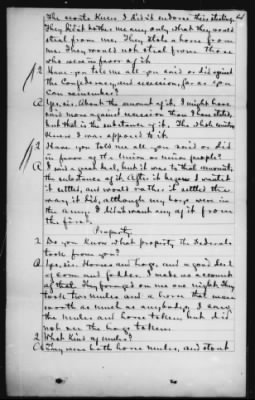 The rents knew I didn't endorse this stealing. 64
They didn't bother me any, only what they would
steal from me. They stole a horse from
me. They would not steal from those
who were in favor of it.
2 Have you told me all you said or did against
the Confederacy and secession, so far as you
can remember?
A Yes, sir. About the amount of it. I might have
said more against secession than I have stated,
but that is the substance of it. The whole country
knew I was opposed to it.
2 Have you told me all you said or did
in favor of the Union or union people?
A I said a great deal, but it was to that amount,
the substance of it. After it began I wanted
it settled, and would rather it settled the
way it did, although my boys were in
the army. I didn't want any of it from
the first.
Property
2 Do you know what property the Federals
took from you?
A Yes, sir. Horses and hogs, and a good deal
of corn and fodder. I made no account
of that. They foraged on me one night. They
took two mules and a horse that were
worth as much as anybody's. I saw
the mules and horse taken but did
not see the hogs taken.
2 What kind of mules?
A They were both horse mules, and stout